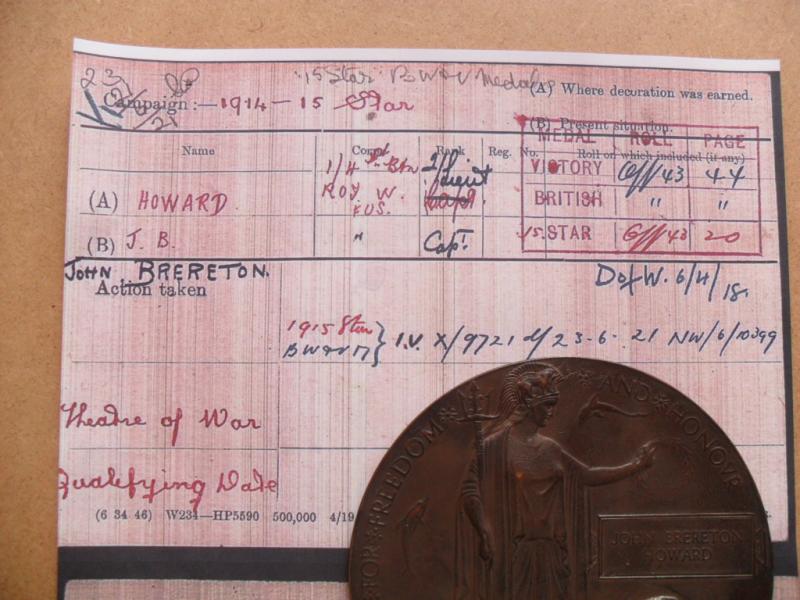 '15 Star BW & V Medals
23
21
(A) Where decoration was earned.
Campaign:—1914-15 Star
(B) Present situation.
Name Corps Rank Reg. No. Roll on which included (if any)
MEDAL ROLL PAGE
VICTORY Off/43 44
BRITISH " "
15. STAR Off/43 20
(A) HOWARD 1/4th Bn
ROY. W.
FUS.
(B) J. B. " Capt.
JOHN BRERETON.
Action taken
D of W. 6/4/18.
1915 Star
BW & V } I.V. X/9721 d/23-6-21 NW/6/10399
Theatre of War
Qualifying Date
(6 34 46) W234—HP5590 500,000 4/19
FOR FREEDOM AND HONOUR
JOHN BRERETON
HOWARD